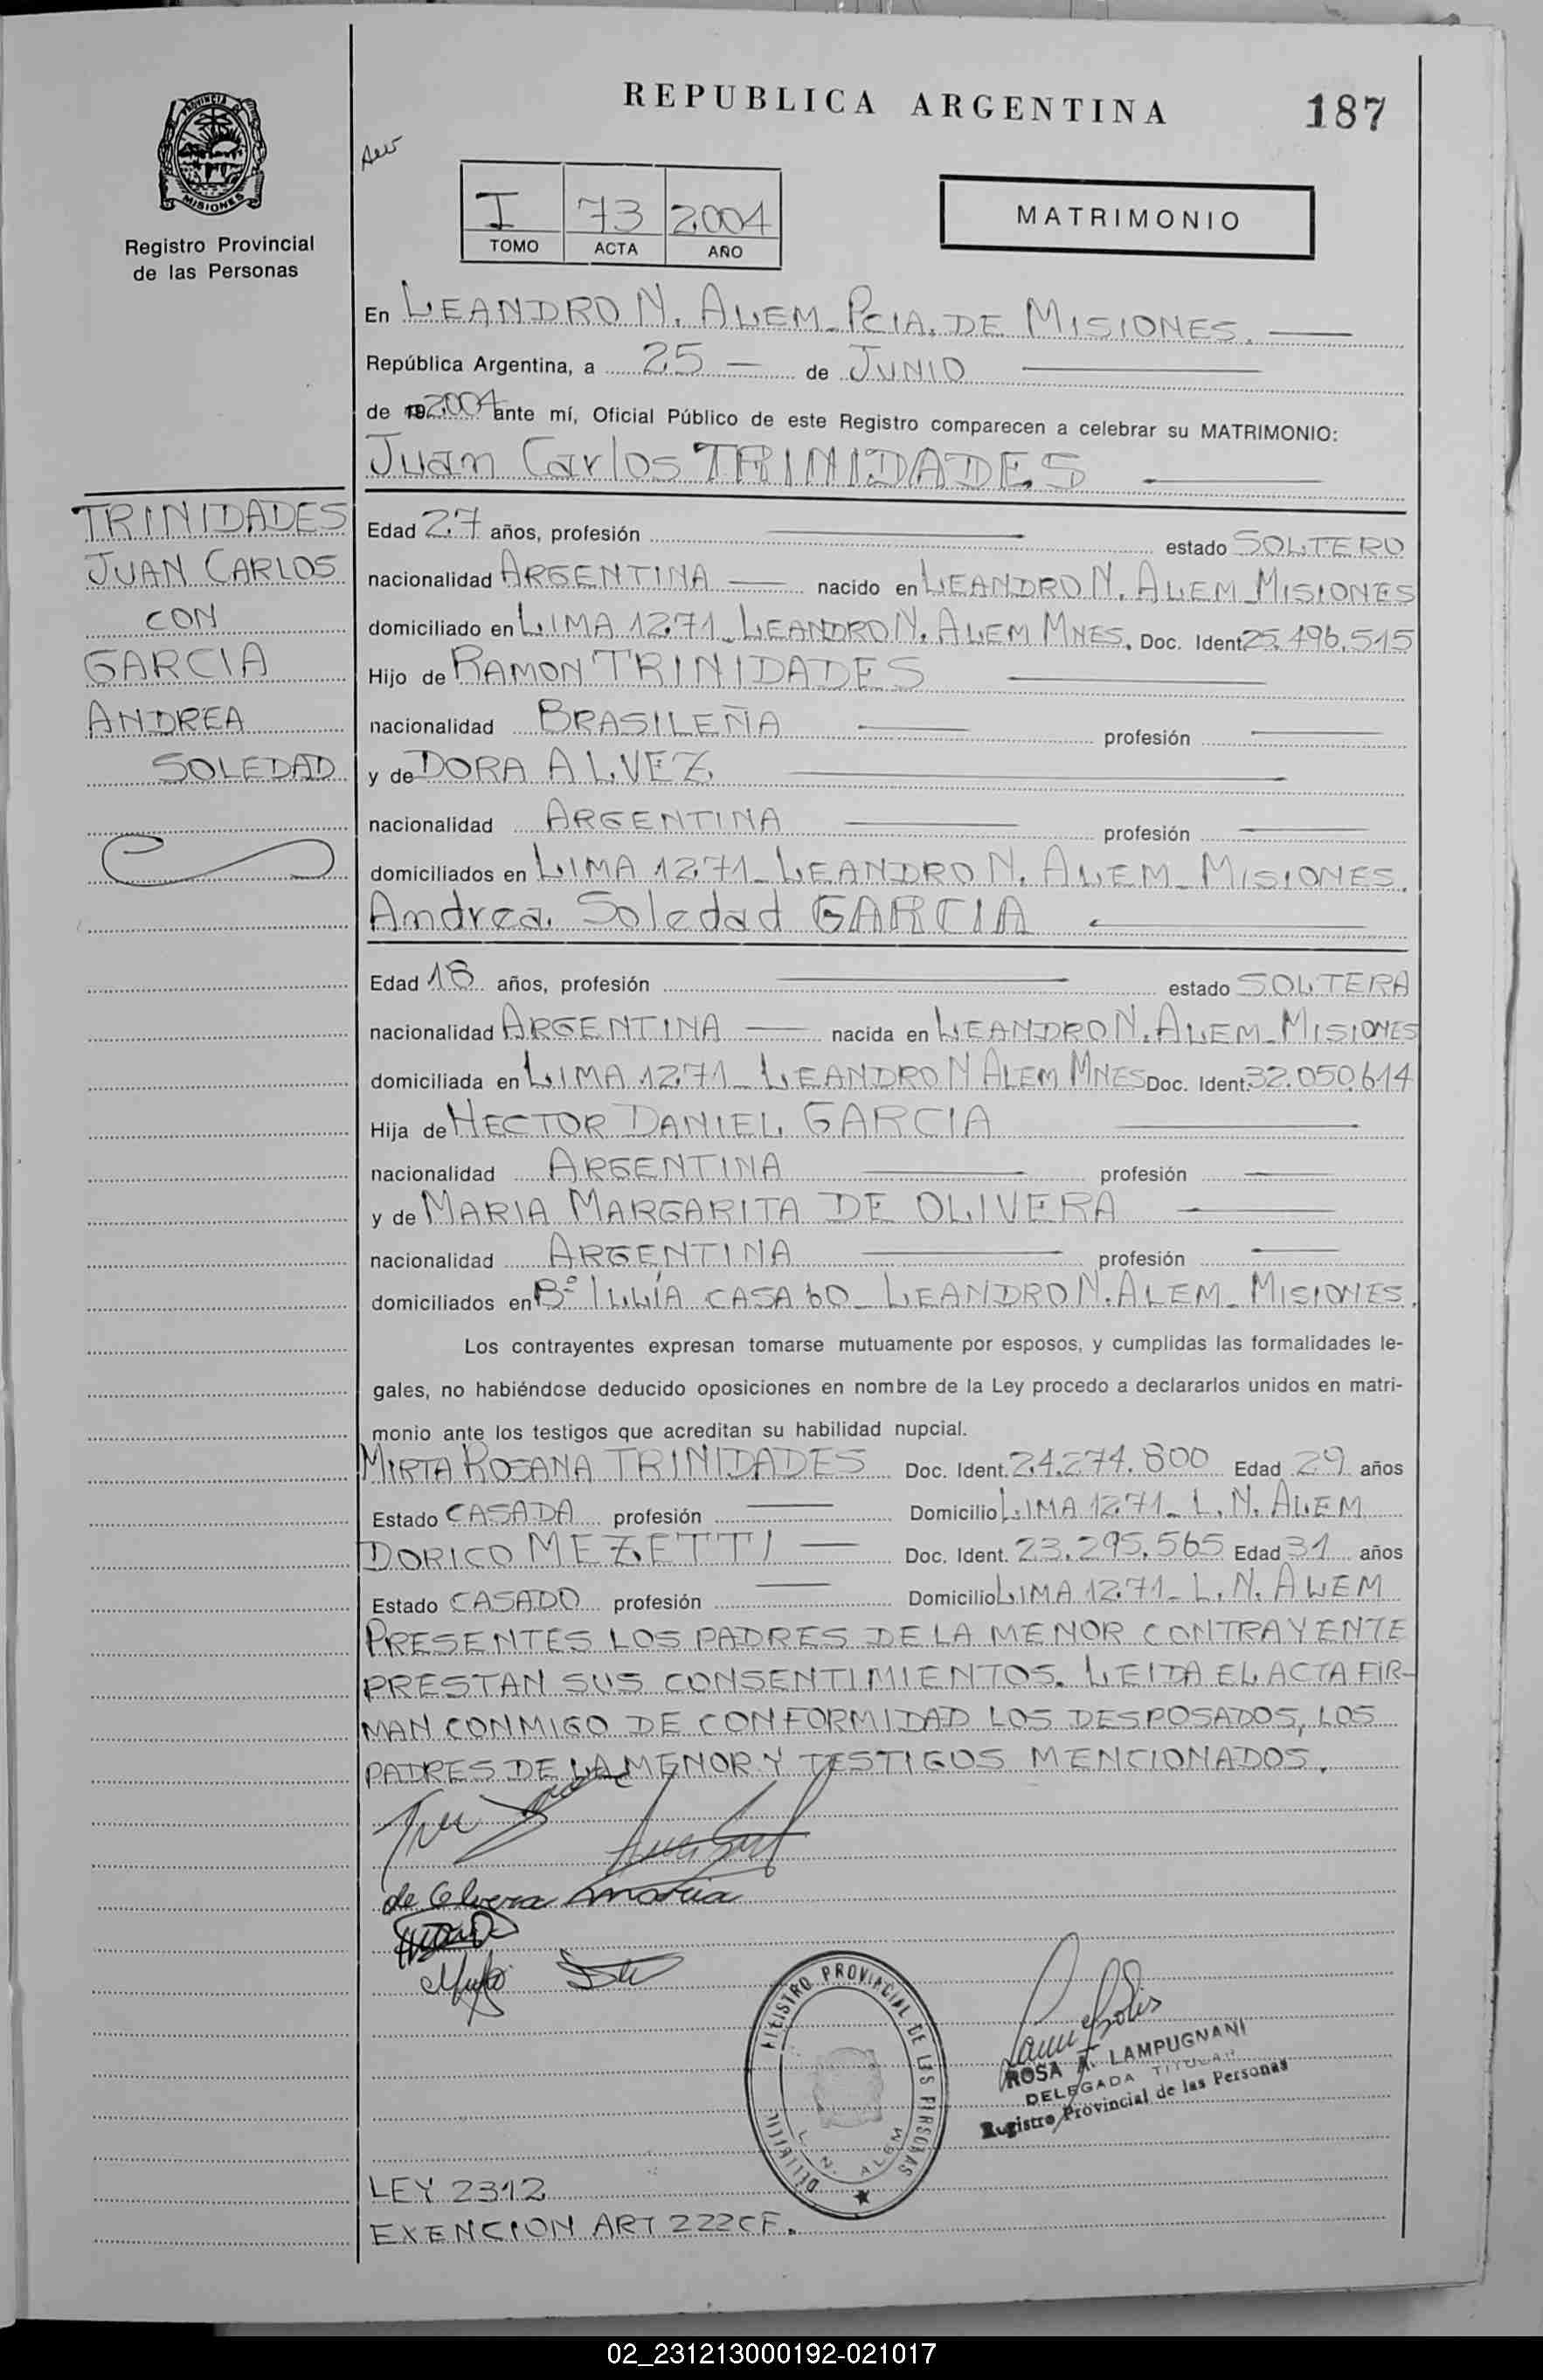 REPUBLICA ARGENTINA
187
PROVINCIA
MISIONES
Registro Provincial
de las Personas
I 73 2004
TOMO ACTA AÑO
MATRIMONIO
En LEANDRO N. ALEM_PCIA. DE MISIONES.
República Argentina, a 25 — de JUNIO
de 19 2004 ante mí, Oficial Público de este Registro comparecen a celebrar su MATRIMONIO:
Juan Carlos TRINIDADES
TRINIDADES
JUAN CARLOS
CON
GARCIA
ANDREA
SOLEDAD
Edad 27 años, profesión — estado SOLTERO
nacionalidad ARGENTINA — nacido en LEANDRO N. ALEM_MISIONES
domiciliado en LIMA 1271_LEANDRO N. ALEM MNES. Doc. Ident. 25.496.515
Hijo de RAMON TRINIDADES
nacionalidad BRASILEÑA — profesión —
y de DORA ALVEZ
nacionalidad ARGENTINA — profesión —
domiciliados en LIMA 1271_LEANDRO N. ALEM_MISIONES.
Andrea Soledad GARCIA
Edad 18 años, profesión — estado SOLTERA
nacionalidad ARGENTINA — nacida en LEANDRO N. ALEM_MISIONES
domiciliada en LIMA 1271_LEANDRO N ALEM MNES Doc. Ident. 32.050.614
Hija de HECTOR DANIEL GARCIA
nacionalidad ARGENTINA — profesión —
y de MARIA MARGARITA DE OLIVERA
nacionalidad ARGENTINA — profesión —
domiciliados en Bº ILLÍA CASA 60_LEANDRO N. ALEM_MISIONES.
Los contrayentes expresan tomarse mutuamente por esposos, y cumplidas las formalidades le-
gales, no habiéndose deducido oposiciones en nombre de la Ley procedo a declararlos unidos en matri-
monio ante los testigos que acreditan su habilidad nupcial.
MIRTA ROSANA TRINIDADES Doc. Ident. 24.274.800 Edad 29 años
Estado CASADA profesión — Domicilio LIMA 1271_L.N. ALEM
DORICO MEZETTI — Doc. Ident. 23.295.565 Edad 31 años
Estado CASADO profesión — Domicilio LIMA 1271_L.N. ALEM
PRESENTES LOS PADRES DE LA MENOR CONTRAYENTE
PRESTAN SUS CONSENTIMIENTOS. LEIDA EL ACTA FIR-
MAN CONMIGO DE CONFORMIDAD LOS DESPOSADOS, LOS
PADRES DE LA MENOR Y TESTIGOS MENCIONADOS.
de Olivera Maria
REGISTRO PROVINCIAL DE LAS PERSONAS
L. N. ALEM
ROSA A. LAMPUGNANI
DELEGADA TITULAR
Registro Provincial de las Personas
LEY 2312
EXENCION ART 222CF.
02_231213000192-021017